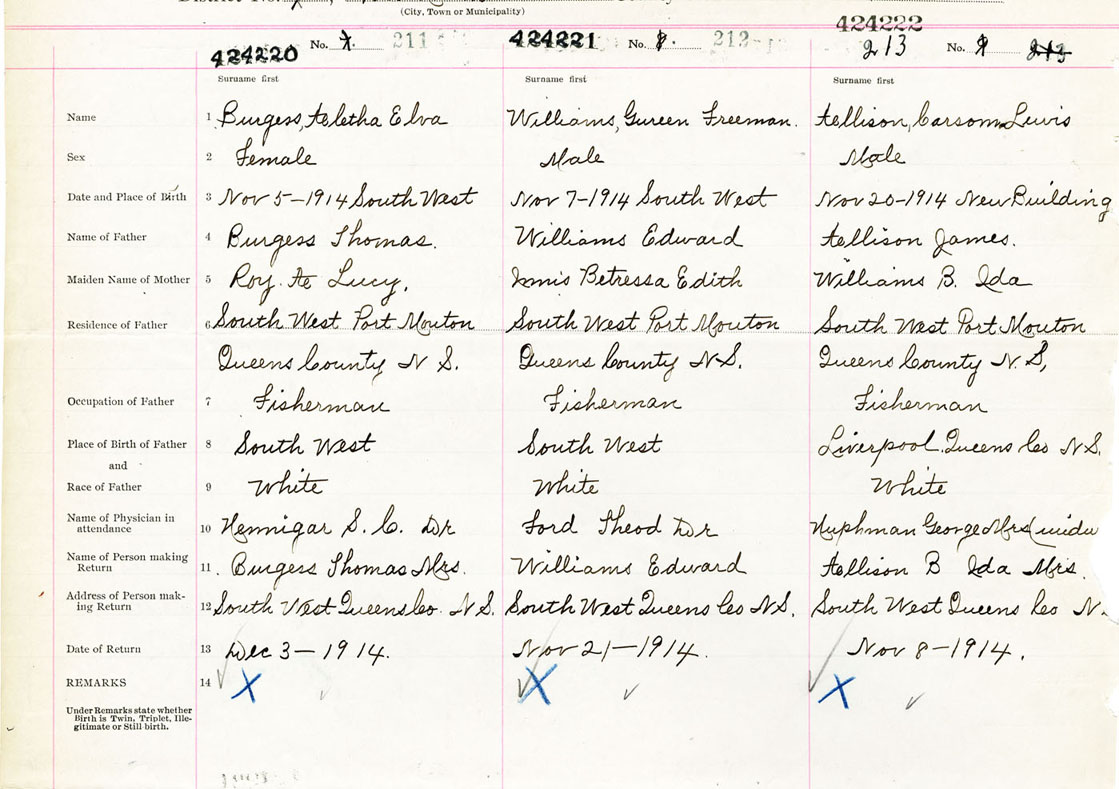 (City, Town or Municipality)
424220 No. 7. 211 424221 No. 8. 212 424222 213 No. 9 213
Surname first Surname first Surname first
Name 1 Burgess, Aletha Elva Williams, Gureen Freeman. Allison, Carsom Lewis
Sex 2 Female Male Male
Date and Place of Birth 3 Nov 5-1914 South West Nov 7-1914 South West Nov 20-1914 New Building
Name of Father 4 Burgess Thomas. Williams Edward Allison James.
Maiden Name of Mother 5 Roy. A Lucy, Innis Betressa Edith Williams B. Ida
Residence of Father 6 South West Port Mouton South West Port Mouton South West Port Mouton
Queens County N S. Queens County N.S. Queens County N.S,
Occupation of Father 7 Fisherman Fisherman Fisherman
Place of Birth of Father 8 South West South West Liverpool. Queens Co N.S.
and
Race of Father 9 White White White
Name of Physician in
attendance 10 Hennigar S. C. Dr Ford Theod Dr George Mrs
Name of Person making
Return 11. Burgess Thomas Mrs. Williams Edward Allison B Ida Mrs.
Address of Person mak-
ing Return 12 South West Queens Co. N.S. South West Queens Co N.S. South West Queens Co N.
Date of Return 13 Dec 3-1914. Nov 21-1914. Nov 8-1914.
REMARKS 14 X X X
Under Remarks state whether
Birth is Twin, Triplet, Ille-
gitimate or Still birth.